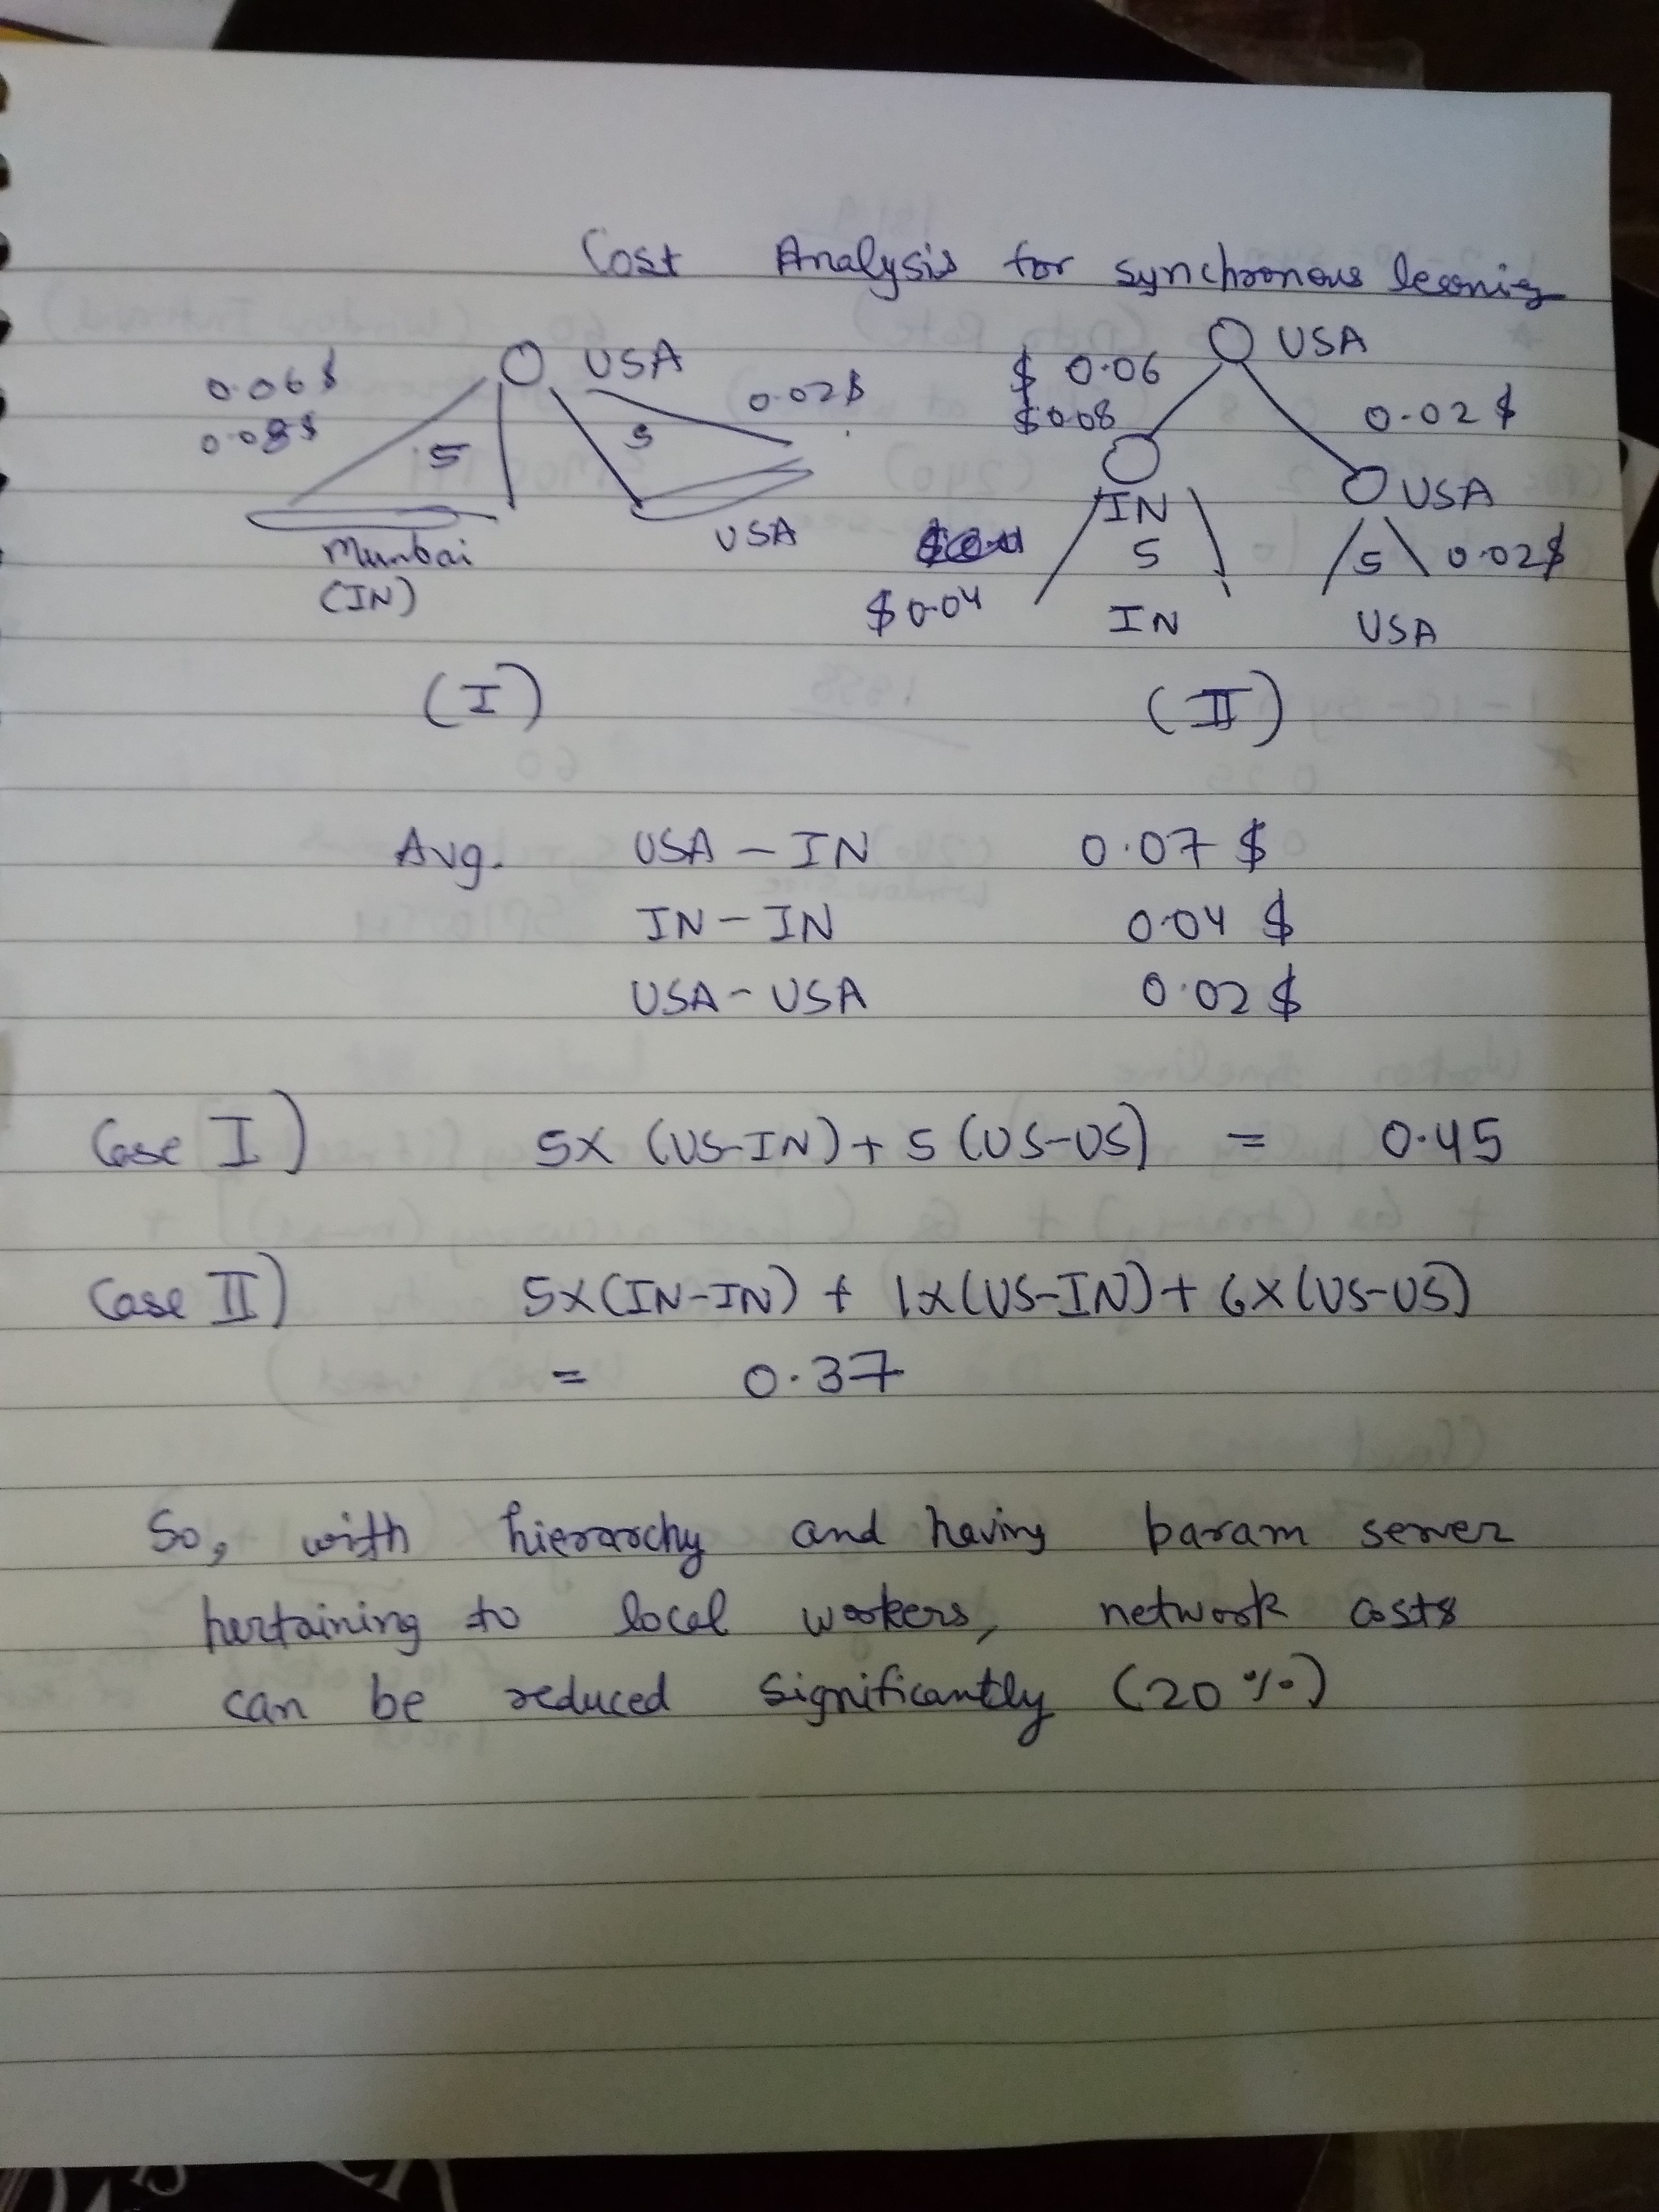 Cost Analysis for synchronous learning
0.06$
0.08$
USA
0.02$
5
5
Mumbai
(IN)
USA
(I)
$ 0.06
$0.08
USA
0.02$
IN
USA
5
5
0.02$
$0.04
IN
USA
(II)
Avg. USA - IN 0.07 $
IN - IN 0.04 $
USA - USA 0.02 $
Case I) 5x (US-IN) + 5 (US-US) = 0.45
Case II) 5x(IN-IN) + 1x(US-IN) + 6x(US-US)
= 0.37
So, with hierarchy and having param server
pertaining to local workers, network costs
can be reduced significantly (20%)